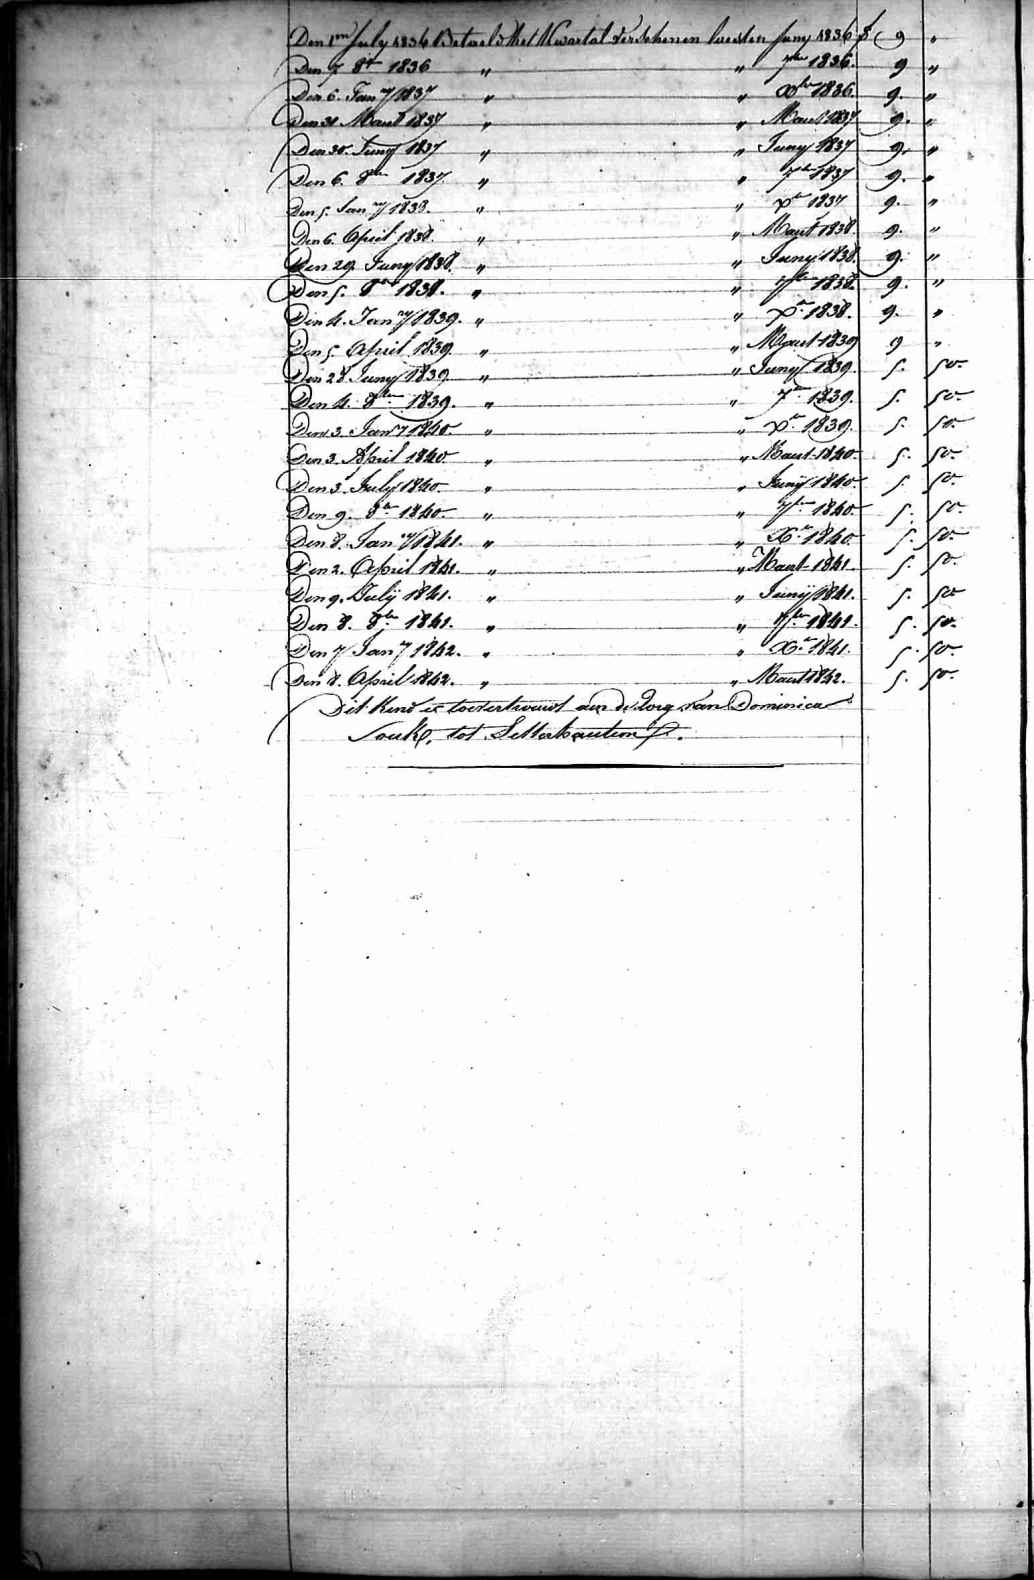 Den 1en July 1836 Betaeld Het Kwartal Verschenen luesten Juny 1836 f 9 "
Den 7 8r 1836 " " 7ber 1836. 9 "
Den 6. Jany 1837 " " Xber 1836. 9. "
Den 31 Maart 1837 " " Maart 1837 9. "
Den 30. Juny 1837 " " Juny 1837 9. "
Den 6. 8ber 1837. " " 7ber 1837 9. "
Den 5. Jany 1838. " " Xr 1837 9. "
Den 6. April 1838. " " Maart 1838. 9. "
Den 29. Juny 1838. " " Juny 1838. 9. "
Den 5. 8ber 1838. " " 7ber 1838. 9. "
Den 4. Jany 1839. " " Xr 1838. 9. "
Den 5. April 1839. " " Maart 1839 9 "
Den 28. Juny 1839. " " Juny 1839. 5. 50.
Den 4. 8ber 1839. " " 7ber 1839. 5. 50.
Den 3. Jany 1840. " " Xr 1839. 5. 50.
Den 3. April 1840. " " Maart 1840. 5. 50.
Den 3. July 1840. " " Junij 1840 5. 50.
Den 9. 8r 1840. " " 7ber 1840 5. 50.
Den 8. Jany 1841. " " Xr 1840 5. 50
Den 2. April 1841. " " Maart 1841. 5. 50.
Den 9. Julij 1841. " " Junij 1841. 5. 50
Den 8. 8ber 1841. " " 7ber 1841. 5. 50.
Den 7 Jany 1842. " " Xr 1841. 5. 50.
Den 8. April 1842. " " Maart 1842. 5. 50.
Dit Kend is toevertrouwt aen de Zorg van Dominicus
tot Letterhautem.